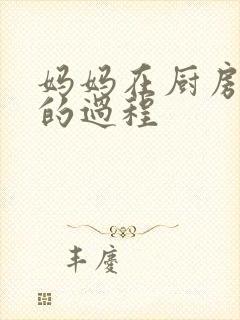 妈妈在厨房
的过程
丰慶